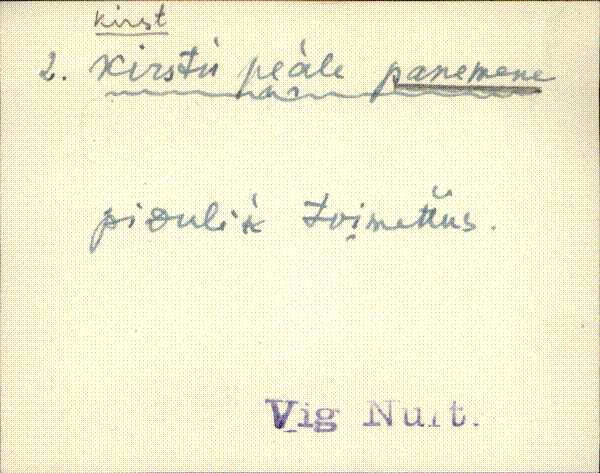 kirst
2. kirstù peàle panemene
piδulìk toi̭mettüs.
Vig Nurt.